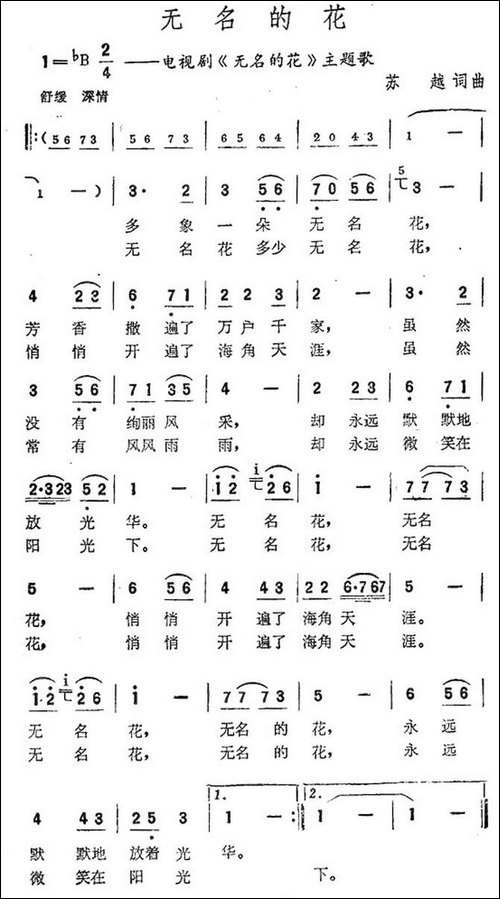 无名的花
1=♭B 2/4 ——电视剧《无名的花》主题歌
苏越词曲
舒缓 深情
‖:( 5 6 7 3 | 5 6 7 3 | 6 5 6 4 | 2 0 4 3 | 1 —
1 — ) | 3· 2 | 3 5 6 | 7 0 5 6 | 5 3 — |
多象一朵无名花,
无名花多少无名花,
4 2 3 | 6 7 1 | 2 2 3 | 2 — | 3· 2 |
芳香撒遍了万户千家,虽然
悄悄开遍了海角天涯,虽然
3 5 6 | 7 1 3 5 | 4 — | 2 2 3 | 6 7 1 |
没有绚丽风采,却永远默默地
常有风风雨雨,却永远微笑在
2·3 2 3 5 2 | 1 — | 1 2 i 2 6 | i — | 7 7 7 3 |
放光华。无名花,无名
阳光下。无名花,无名
5 — | 6 5 6 | 4 4 3 | 2 2 6·7 6 7 | 5 — |
花,悄悄开遍了海角天涯。
花,悄悄开遍了海角天涯。
i·2 i 2 6 | i — | 7 7 7 3 | 5 — | 6 5 6 |
无名花,无名的花,永远
无名花,无名的花,永远
1. 2.
4 4 3 | 2 5 3 | 1 — :‖ 1 — | 1 — ‖
默默地放着光华。
微笑在阳光下。